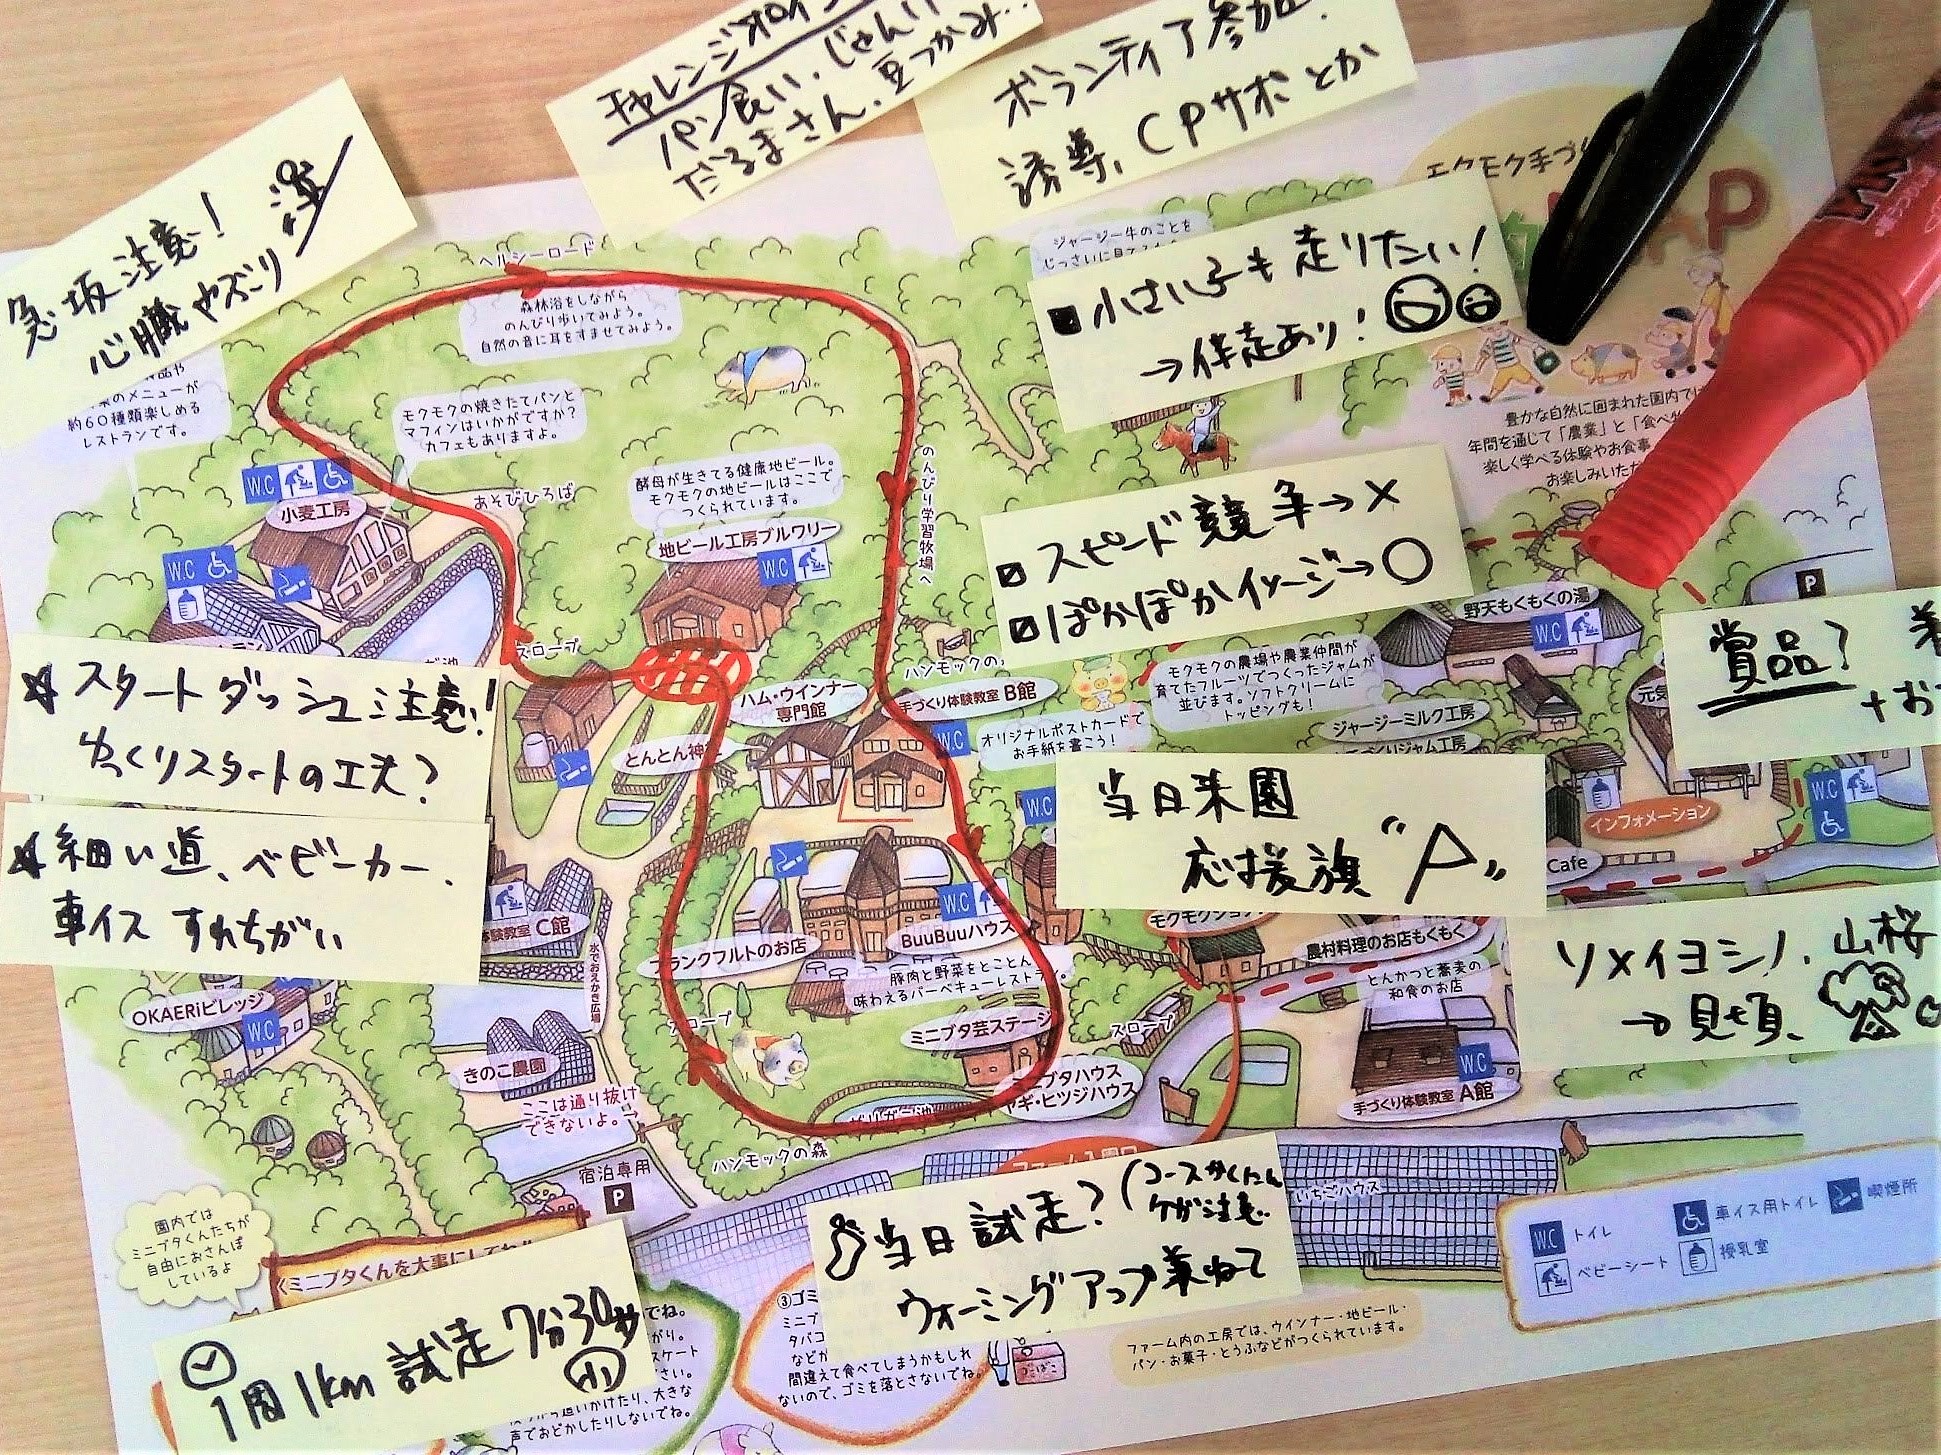 チャレンジ
パン食い・じゃんけ
だるまさん・豆つかみ…
ボランティア参加.
誘導、CPサポとか
急坂注意!
心臓やぶり
小さい子も走りたい!
→伴走あり!
スピード競争→×
ぽかぽかイメージ→○
賞品?
+お
スタートダッシュ注意!
ゆっくりスタートの工夫?
細い道、ベビーカー、
車イス すれちがい
当日来園
応援旗
ソメイヨシノ、山桜
→見頃、
当日試走?(コースかくにん
ケガ注意..
ウォーミングアップ兼ねて
1周1km 試走7分30秒
モクモク手づ
ヘルシーロード
森林浴をしながら
のんびり歩いてみよう。
自然の音に耳をすませてみよう。
ジャージー牛のことを
のメニューが
約60種類楽しめる
レストランです。
モクモクの焼きたてパンと
マフィンはいかがですか?
カフェもありますよ。
酵母が生きてる健康地ビール。
モクモクの地ビールはここで
つくられています。
地ビール工房ブルワリー
W.C
小麦工房
あそびひろば
W.C
W.C
スロープ
のんびり学習牧場へ
豊かな自然に囲まれた園内で
年間を通じて「農業」と「食べ
楽しく学べる体験やお食事
お楽しみいただ
P
野天もくもくの湯
W.C
ハンモックの
ハム・ウインナー
専門館
手づくり体験教室 B館
W.C
オリジナルポストカードで
お手紙を書こう!
モクモクの農場や農業仲間が
育てたフルーツでつくったジャムが
並びます。ソフトクリームに
トッピングも!
ジャージーミルク工房
づくりジャム工房
元気
とんとん神
W.C
インフォメーション
W.C
Cafe
体験教室 C館
水でおえかき広場
フランクフルトのお店
W.C
BuuBuuハウス
豚肉と野菜をとことん
味わえるバーベキューレストラン。
モクモクショップ
農村料理のお店もくもく
とんかつと蕎麦の
和食のお店
OKAERiビレッジ
W.C
きのこ農園
ここは通り抜け
できないよ。→
スロープ
ミニブタ芸ステージ
スロープ
ミニブタハウス
ヤギ・ヒツジハウス
W.C
手づくり体験教室 A館
ハンモックの森
宿泊専用
P
いちごハウス
W.C トイレ
車イス用トイレ
喫煙所
ベビーシート
授乳室
園内では
ミニブタくんたちが
自由におさんぽ
しているよ
ミニブタくんを大事にしてね
でね。
がり。
スケート
さい。
追いかけたり、大きな
声でおどかしたりしないでね。
③ゴミ
ミニブ
タバコ
などが
間違えて食べてしまうかもしれ
ないので、ゴミを落とさないでね。
ごばこ
ファーム内の工房では、ウインナー・地ビール・
パン・お菓子・とうふなどがつくられています。